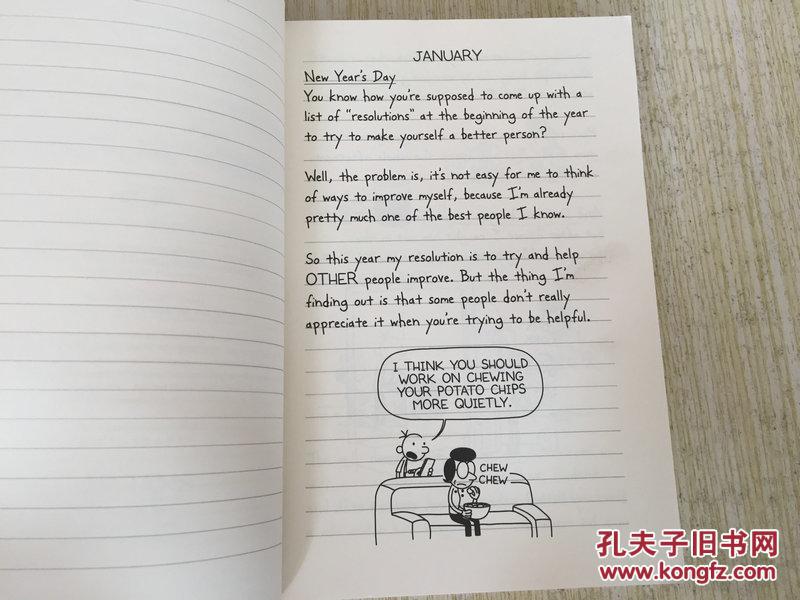 JANUARY
New Year's Day
You know how you're supposed to come up with a
list of "resolutions" at the beginning of the year
to try to make yourself a better person?
Well, the problem is, it's not easy for me to think
of ways to improve myself, because I'm already
pretty much one of the best people I know.
So this year my resolution is to try and help
OTHER people improve. But the thing I'm
finding out is that some people don't really
appreciate it when you're trying to be helpful.
I THINK YOU SHOULD
WORK ON CHEWING
YOUR POTATO CHIPS
MORE QUIETLY.
CHEW
CHEW
孔夫子旧书网
www.kongfz.com